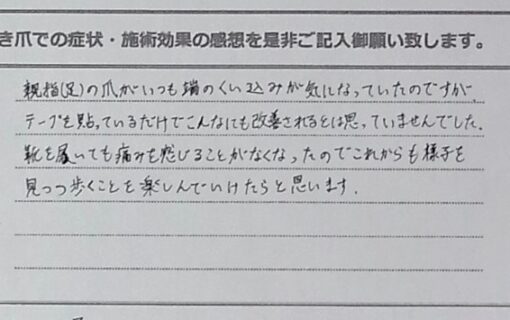 き爪での症状・施術効果の感想を是非ご記入御願い致します。
親指(足)の爪がいつも端のくい込みが気になっていたのですが
テープを貼っているだけでこんなにも改善されるとは思っていませんでした。
靴を履いても痛みを感じることがなくなったのでこれからも様子を
見つつ歩くことを楽しんでいけたらと思います.